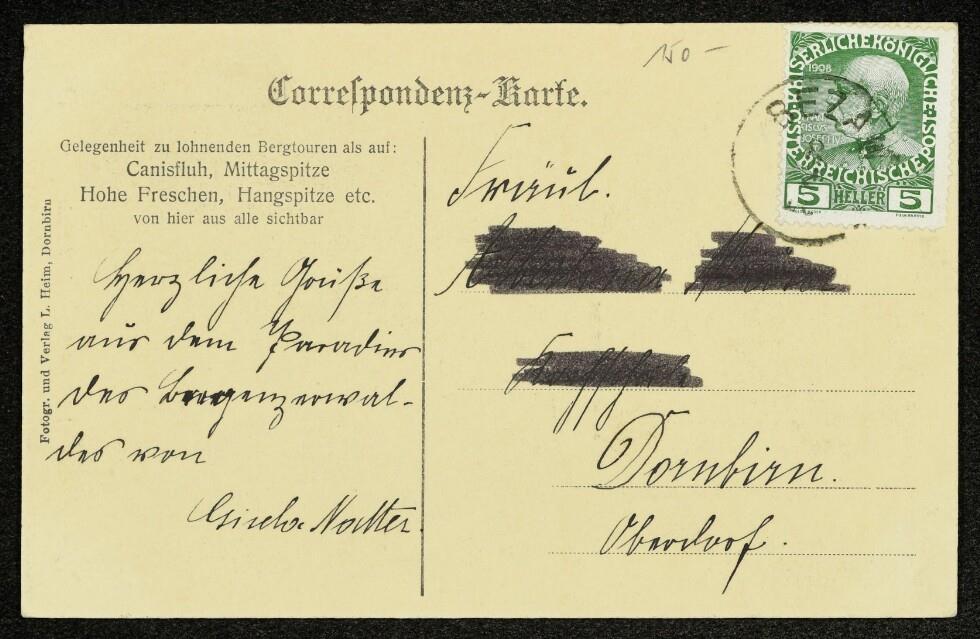 150 –
Correspondenz-Karte.
Gelegenheit zu lohnenden Bergtouren als auf:
Canisfluh, Mittagspitze
Hohe Freschen, Hangspitze etc.
von hier aus alle sichtbar
Fotogr. und Verlag L. Heim, Dornbirn
Herzliche Grüße
aus dem Paradies
des Bregenzerwal-
des von
Gisela Natter.
Fräul.
Dornbirn.
Oberdorf.
KAISERLICHE KÖNIGLICHE
ÖSTERREICHISCHE POST
1908
5 HELLER 5
BEZAU